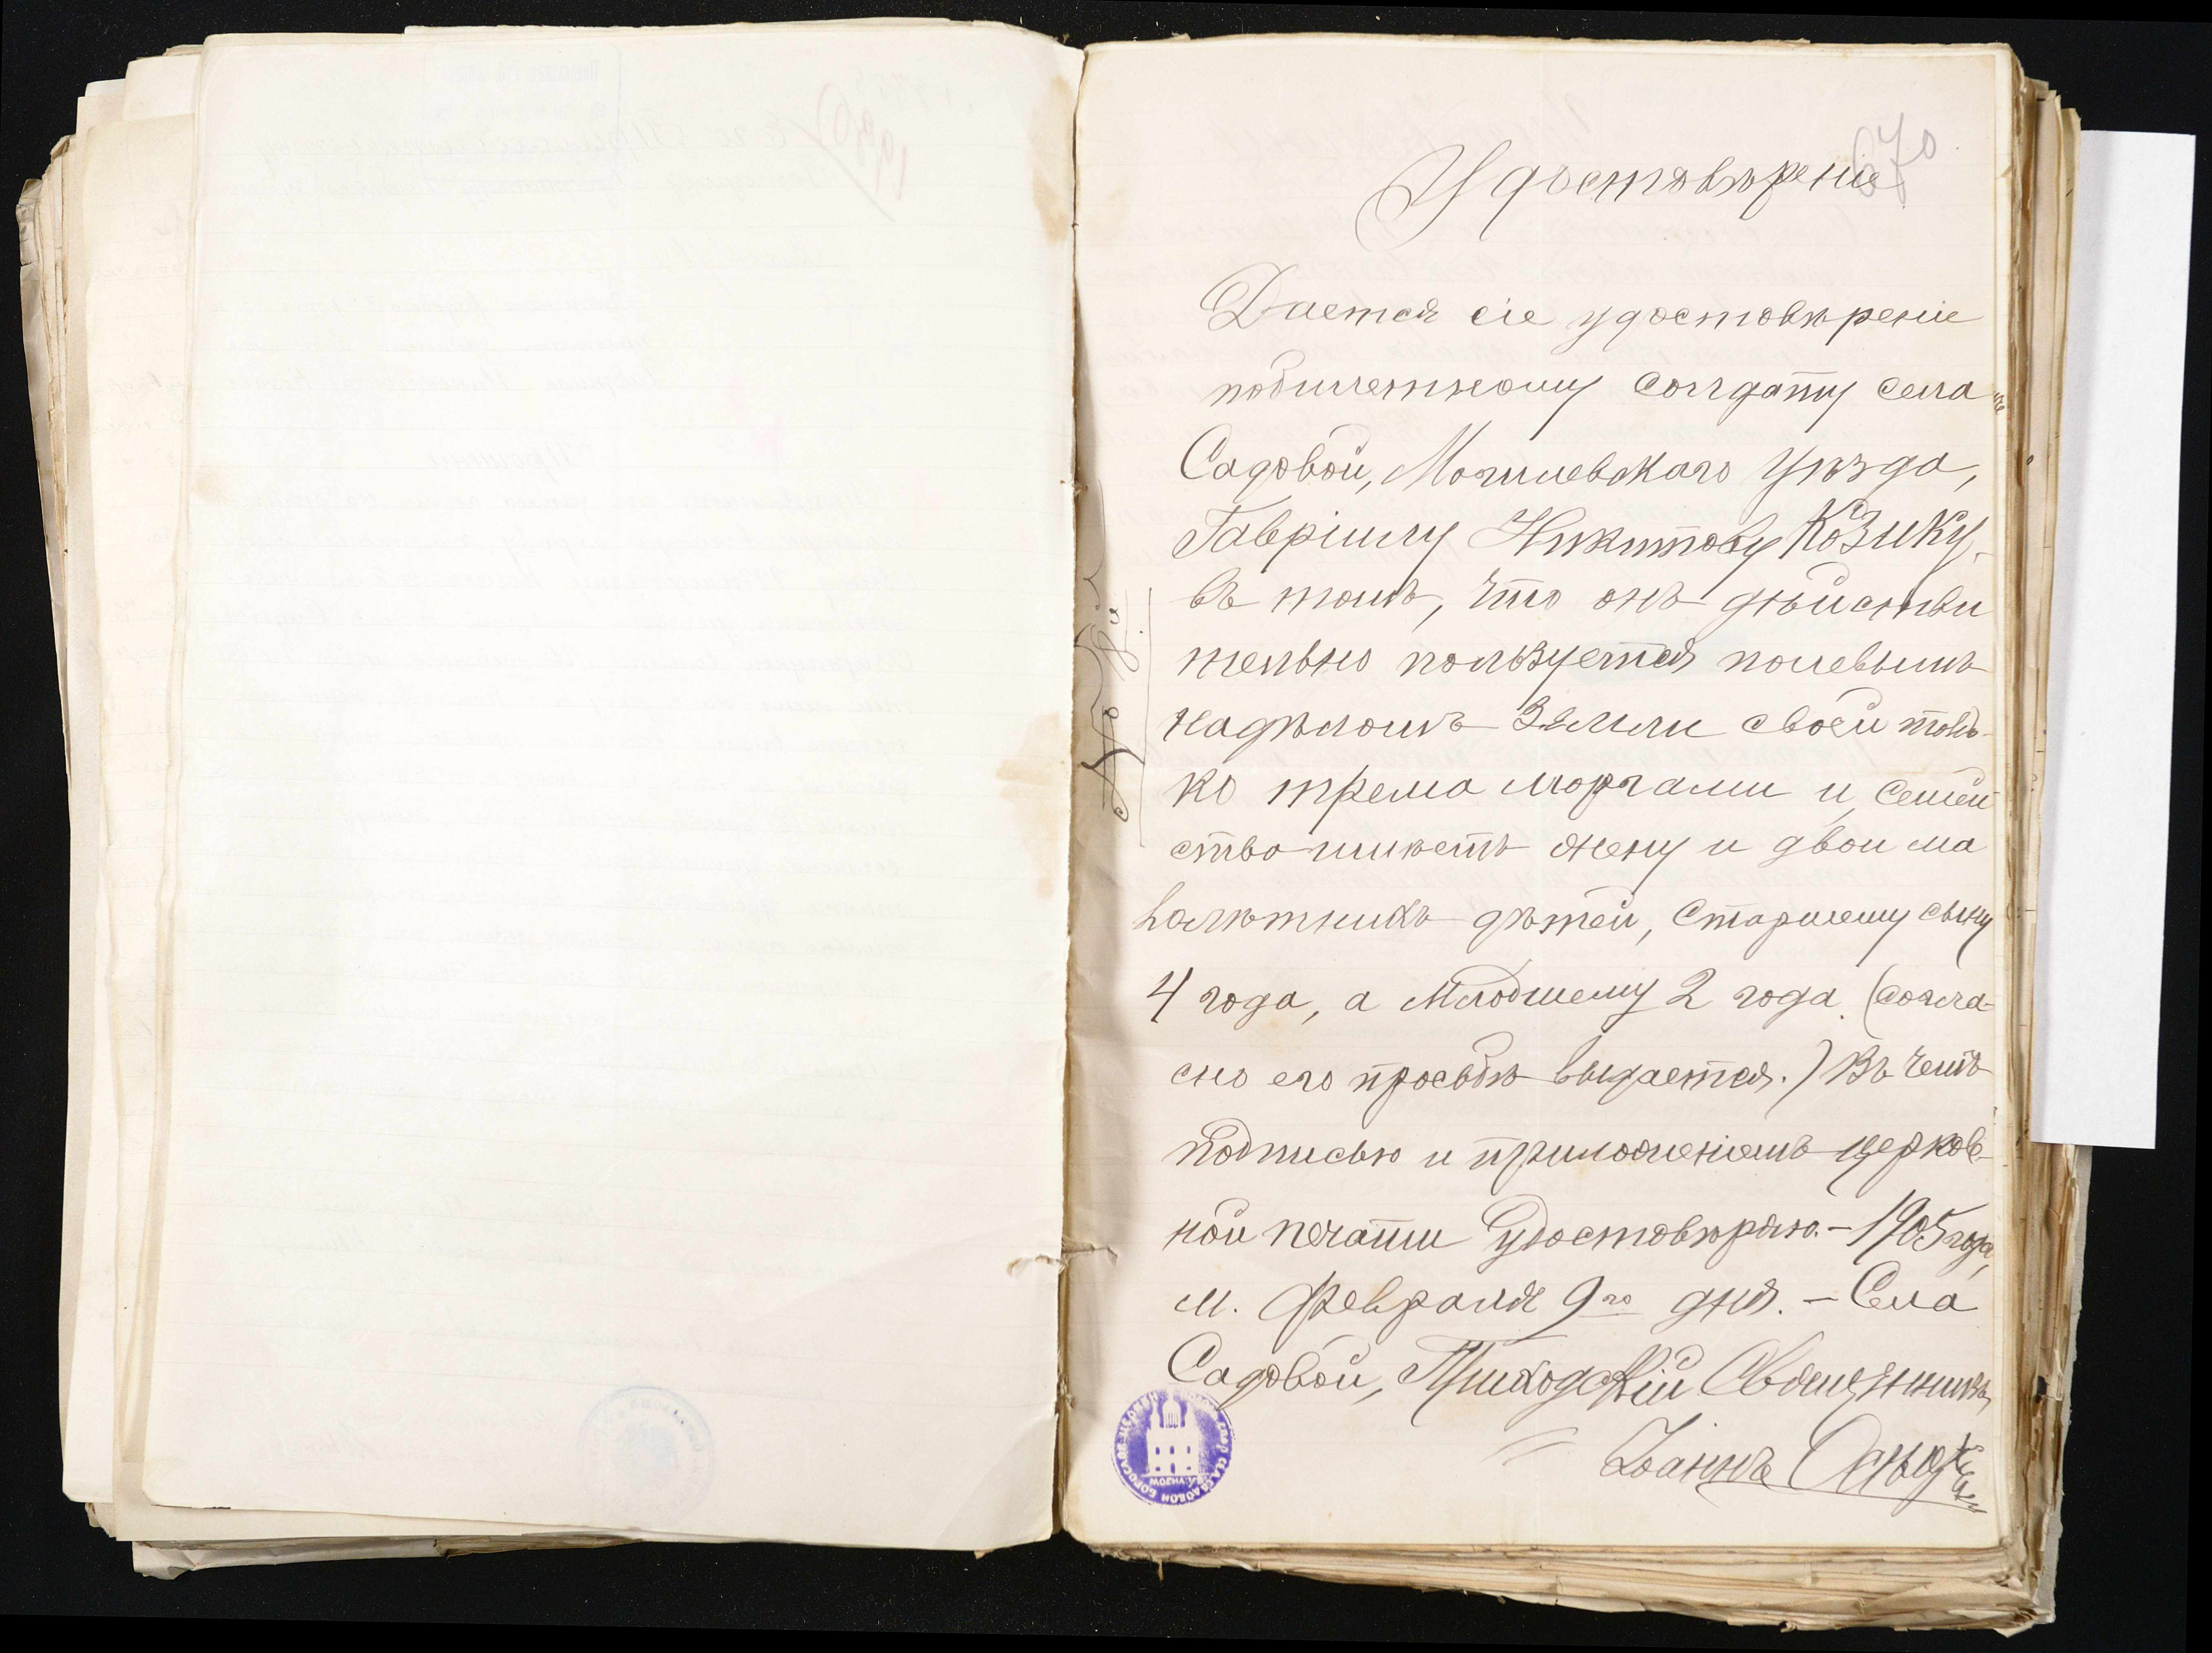 670
Удостовѣреніе
Дается сіе удостовѣреніе
побилетному солдату села
Садовой, Могилевскаго уѣзда,
Гавріилу Никитову Козику,
въ томъ, что онъ дѣйстви
тельно пользуется полевымъ
надѣломъ земли своей толь-
ко трема моргами и, семей
ство имѣетъ жену и двои ма
лолѣтнихъ дѣтей, старшему сыну
4 года, а младшему 2 года. (согла-
сно его просьбѣ выдается.) Въ чемъ
подписью и приложеніемъ церков-
ной печати удостовѣряю. – 1905 года,
м. февраля 9го дня. – Села
Садовой, Приходскій Священникъ
Іоаннъ